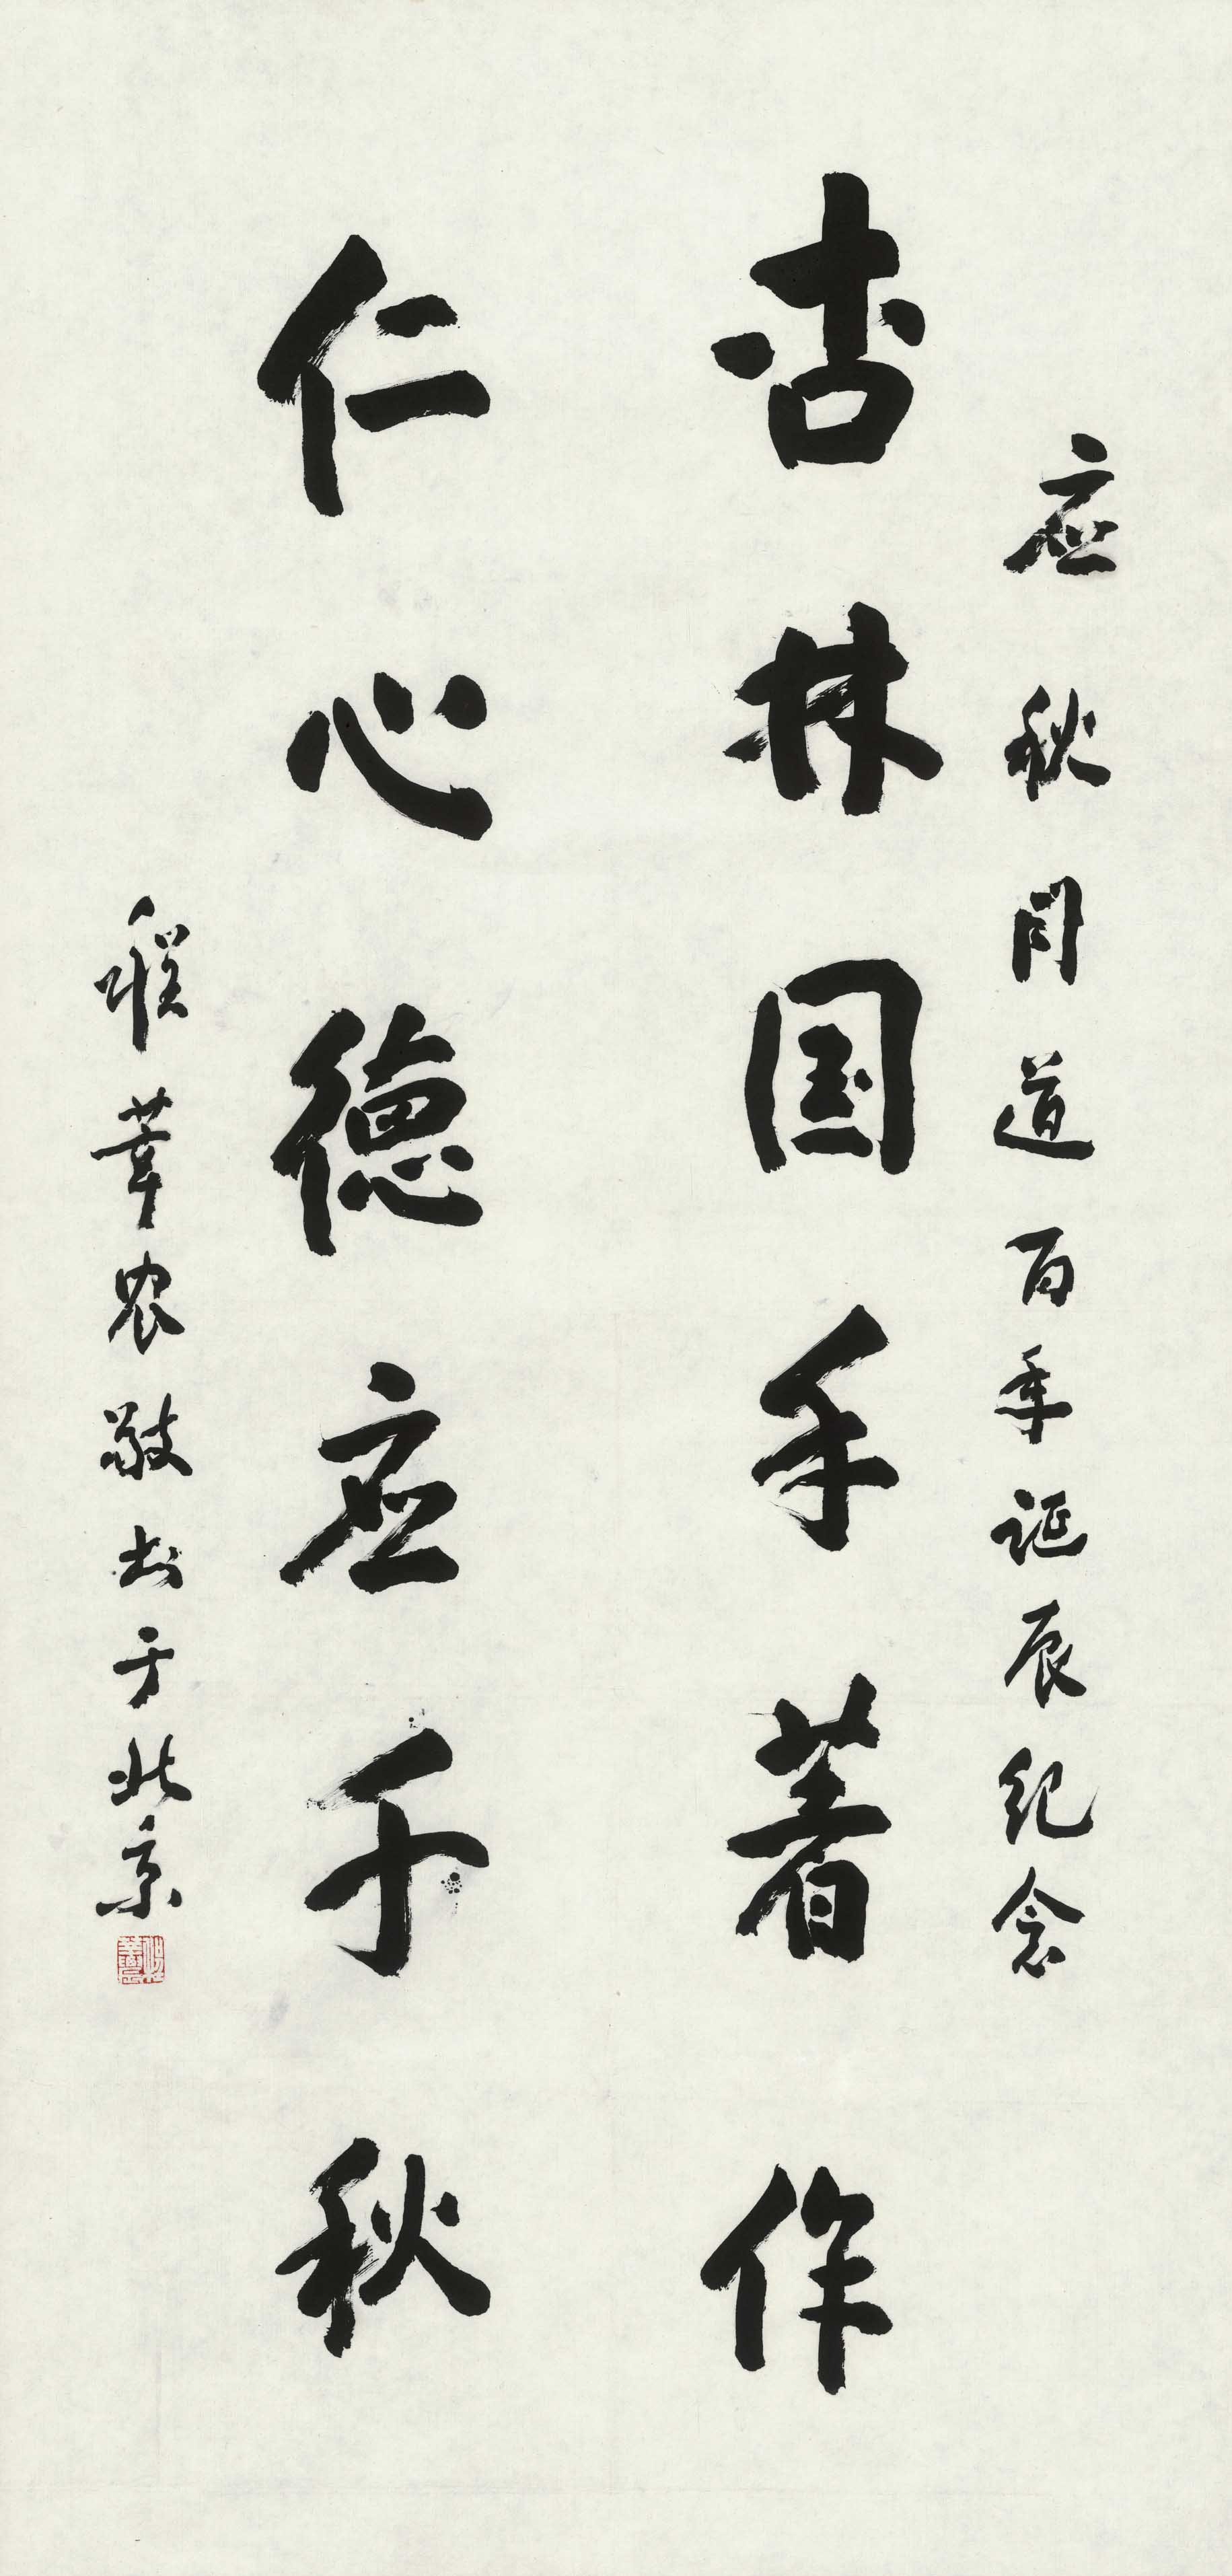 应秋同道百年诞辰纪念
杏林国手著作
仁心德应千秋
程莘农敬书于北京